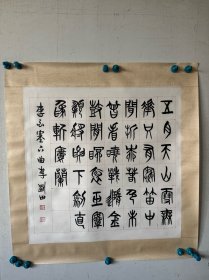 五月天山雪無
花只有寒笛中
聞折柳春色未
曾看曉戰隨金
鼓宵眠抱玉鞍
願將腰下劍直
為斬樓蘭
李白塞下曲 李剛田